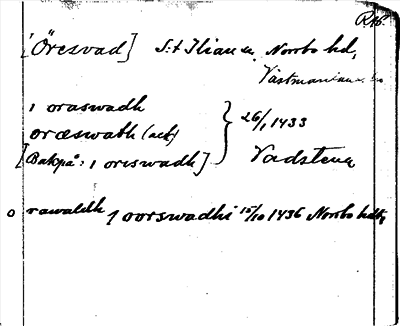 R 16.
[Öresvad] S:t Ilian sn. Norrbo hd,
Västmanlands län
i oraswadh
oræswath (ack)
[Bakpå: i oreswadh]
26/1 1433
Vadstena
o rawaldh i oorswadhi 15/10 1436 Norrbo hdby